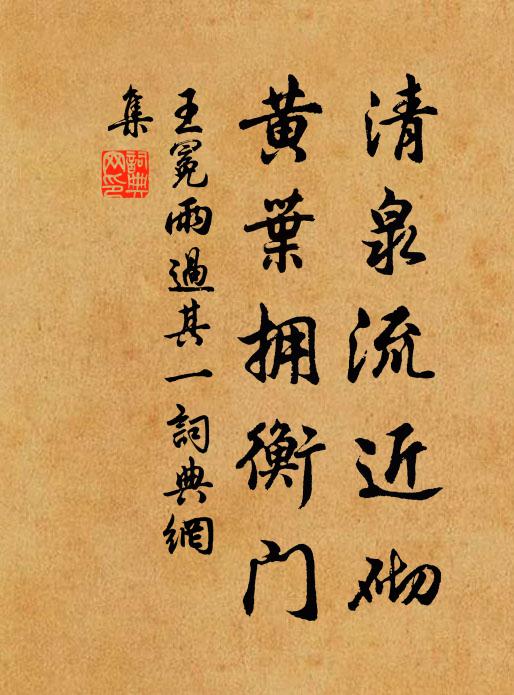 清泉流近砌
黄葉拥衡门
王冕雨過其一詞典網
集
詞典
网印